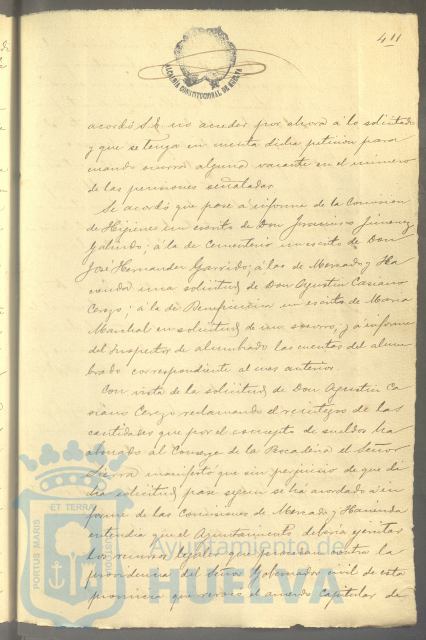 411
ALCALDIA CONSTITUCIONAL DE HUELVA
acordó S.E. no acceder por ahora á lo solicitado
y que se tenga en cuenta dicha petición para
cuando ocurra alguna vacante en el número
de las pensiones señaladas.
Se acordó que pase á informe de la Comisión
de Higiene un escrito de Don Francisco Jimenez
Galindo; á la de Cementerio un escrito de Don
José Hernandez Garrido; á las de Mercado y Ha-
cienda una solicitud de Don Agustin Casiano
Cerezo; á la de Beneficencia un escrito de Maria
Marchal en solicitud de un socorro, y á informe
del Inspector de alumbrado las cuentas del alum-
brado correspondiente al mes anterior.
Con vista de la solicitud de Don Agustin Ca-
siano Cerezo reclamando el reintegro de las
cantidades que por el concepto de sueldos ha
abonado al Conserje de la Pescaderia el Señor
Sierra manifestó que sin perjuicio de que di-
cha solicitud pase segun se ha acordado á in-
forme de las Comisiones de Mercado y Hacienda
entendia que el Ayuntamiento debia ejercitar
los recursos legales que procedan contra la
providencia del Señor Gobernador civil de esta
provincia que revocó el acuerdo Capitular de
PORTUS MARIS ET TERRAE CUSTODIA
Ayuntamiento de
HUELVA